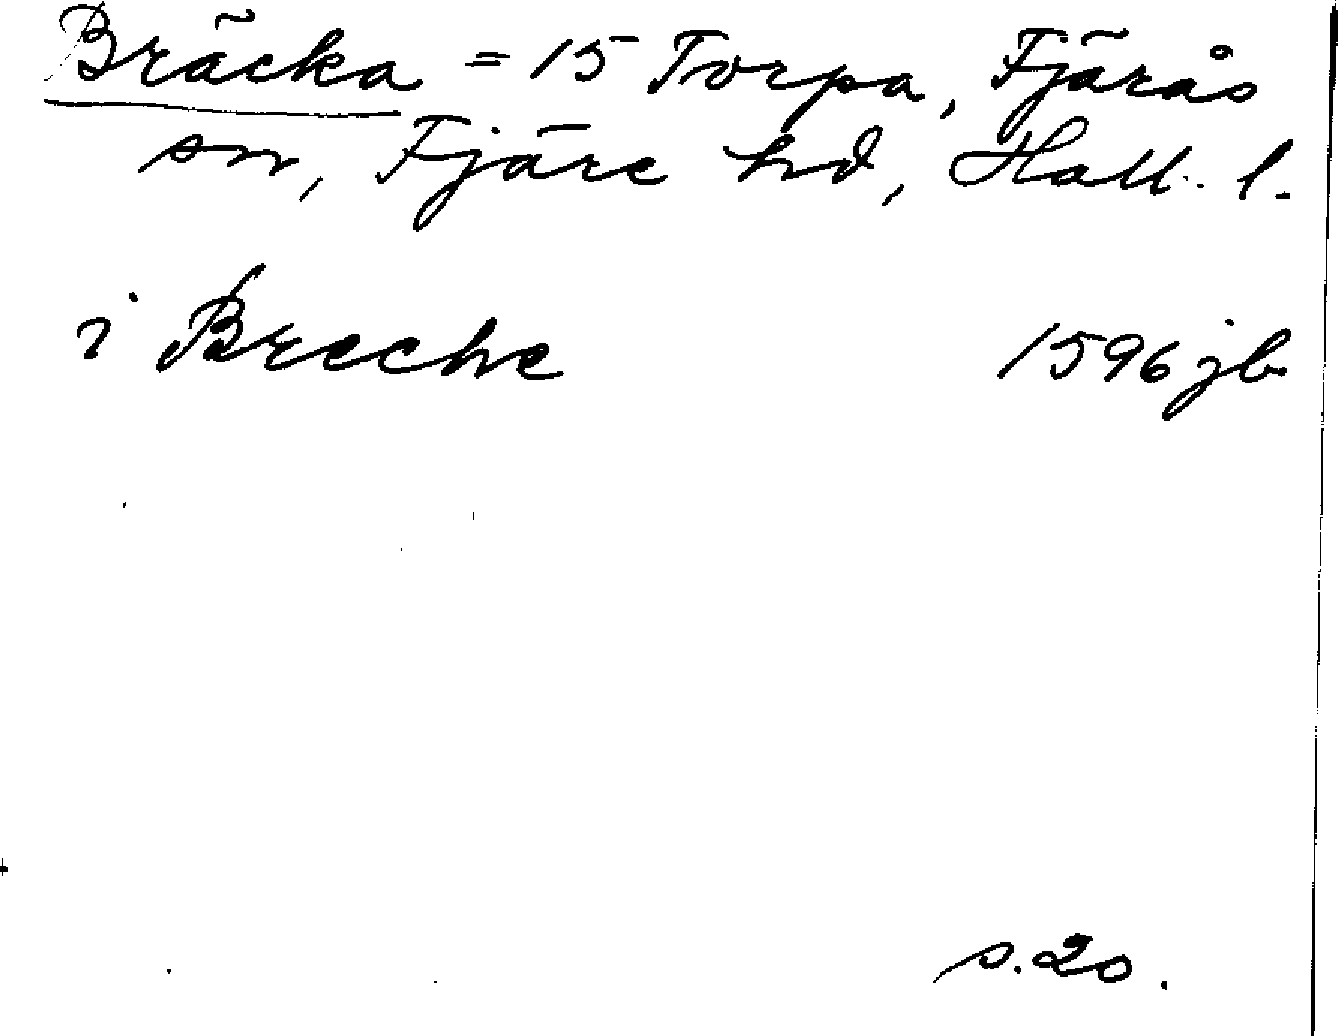 Bräcka = 15 Torpa, Fjärås
sn, Fjäre hd, Hall. l.
i Brecke 1596 jb.
s. 20.